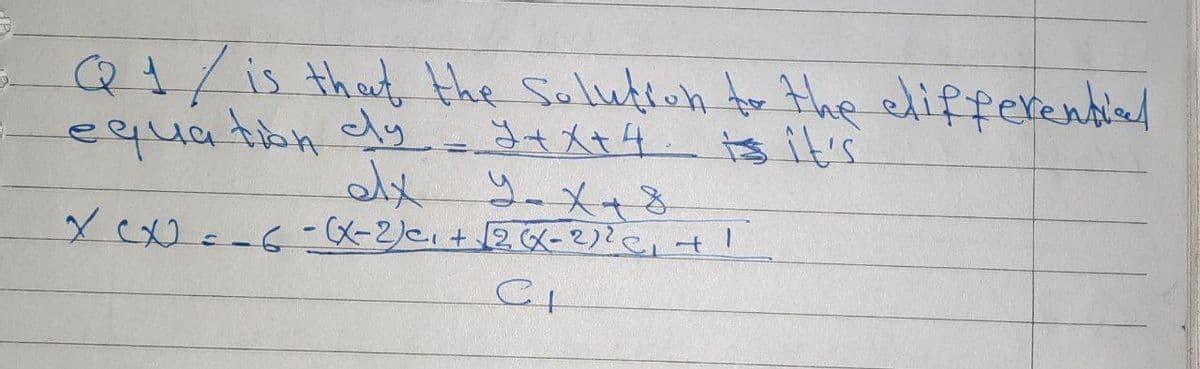 Q1/ is that the Solution to the differential
equation dy/dx = y+x+4 / y-x+8 it's
y(x) = -6 - (x-2)c₁ + √2(x-2)²c₁ + 1 / c₁